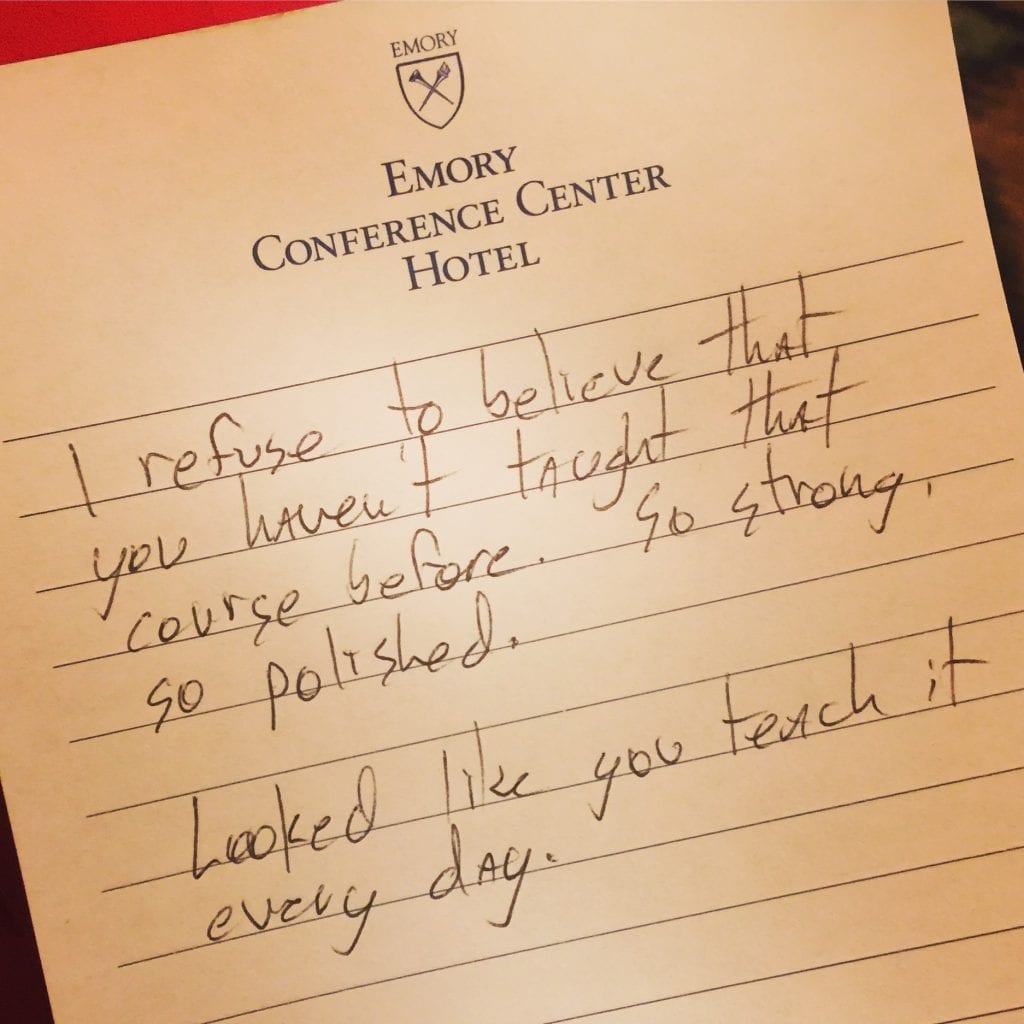 EMORY
EMORY
CONFERENCE CENTER
HOTEL
I refuse to believe that
you haven't taught that
course before. So strong,
so polished.
Looked like you teach it
every day.